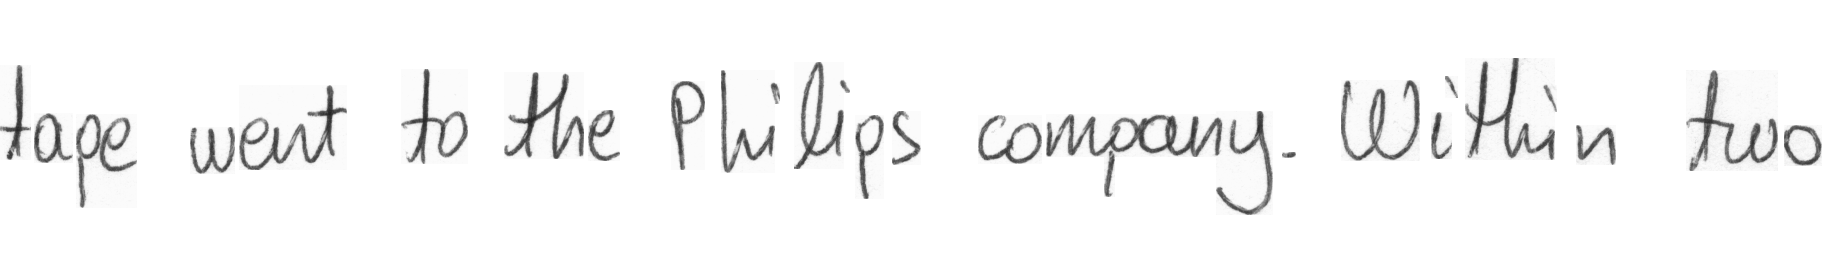 tape went to the Philips company. Within two